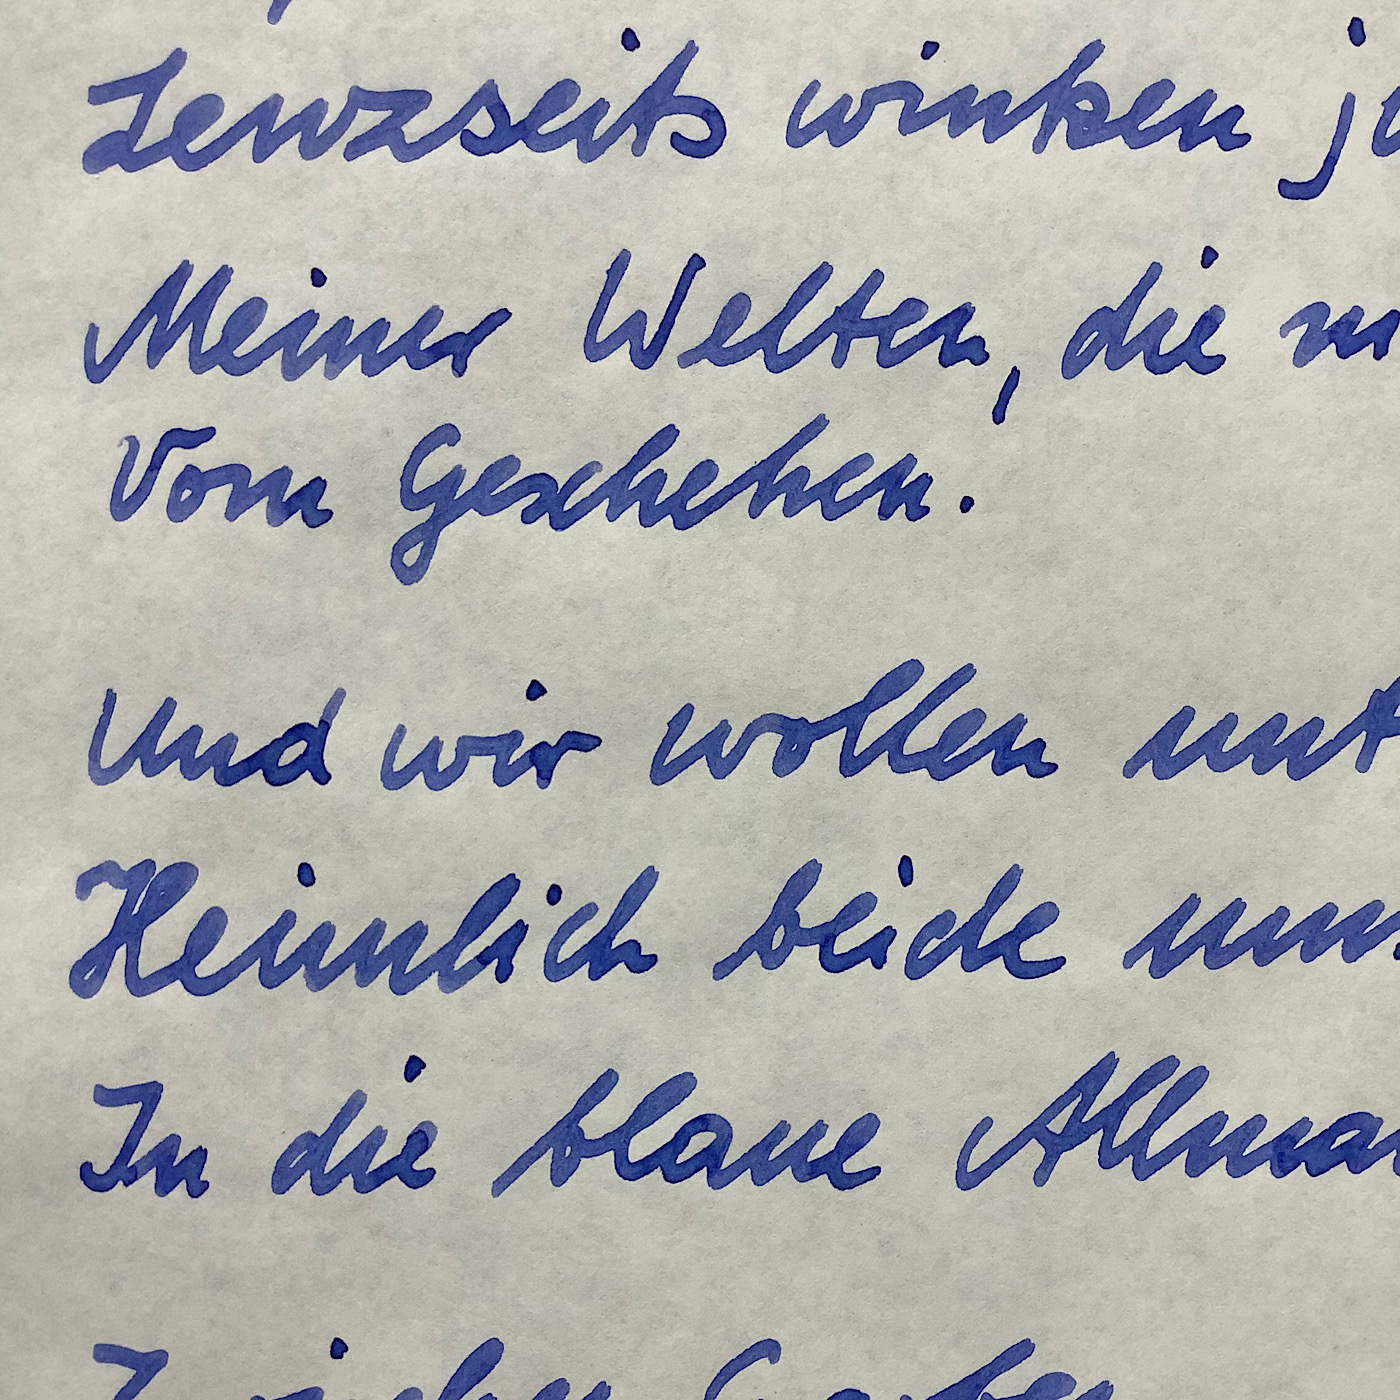 Lenzseits winken j
Meiner Welten, die
Vom Geschehen.
Und wir wollen unt
Heimlich beide
In die blaue Allma